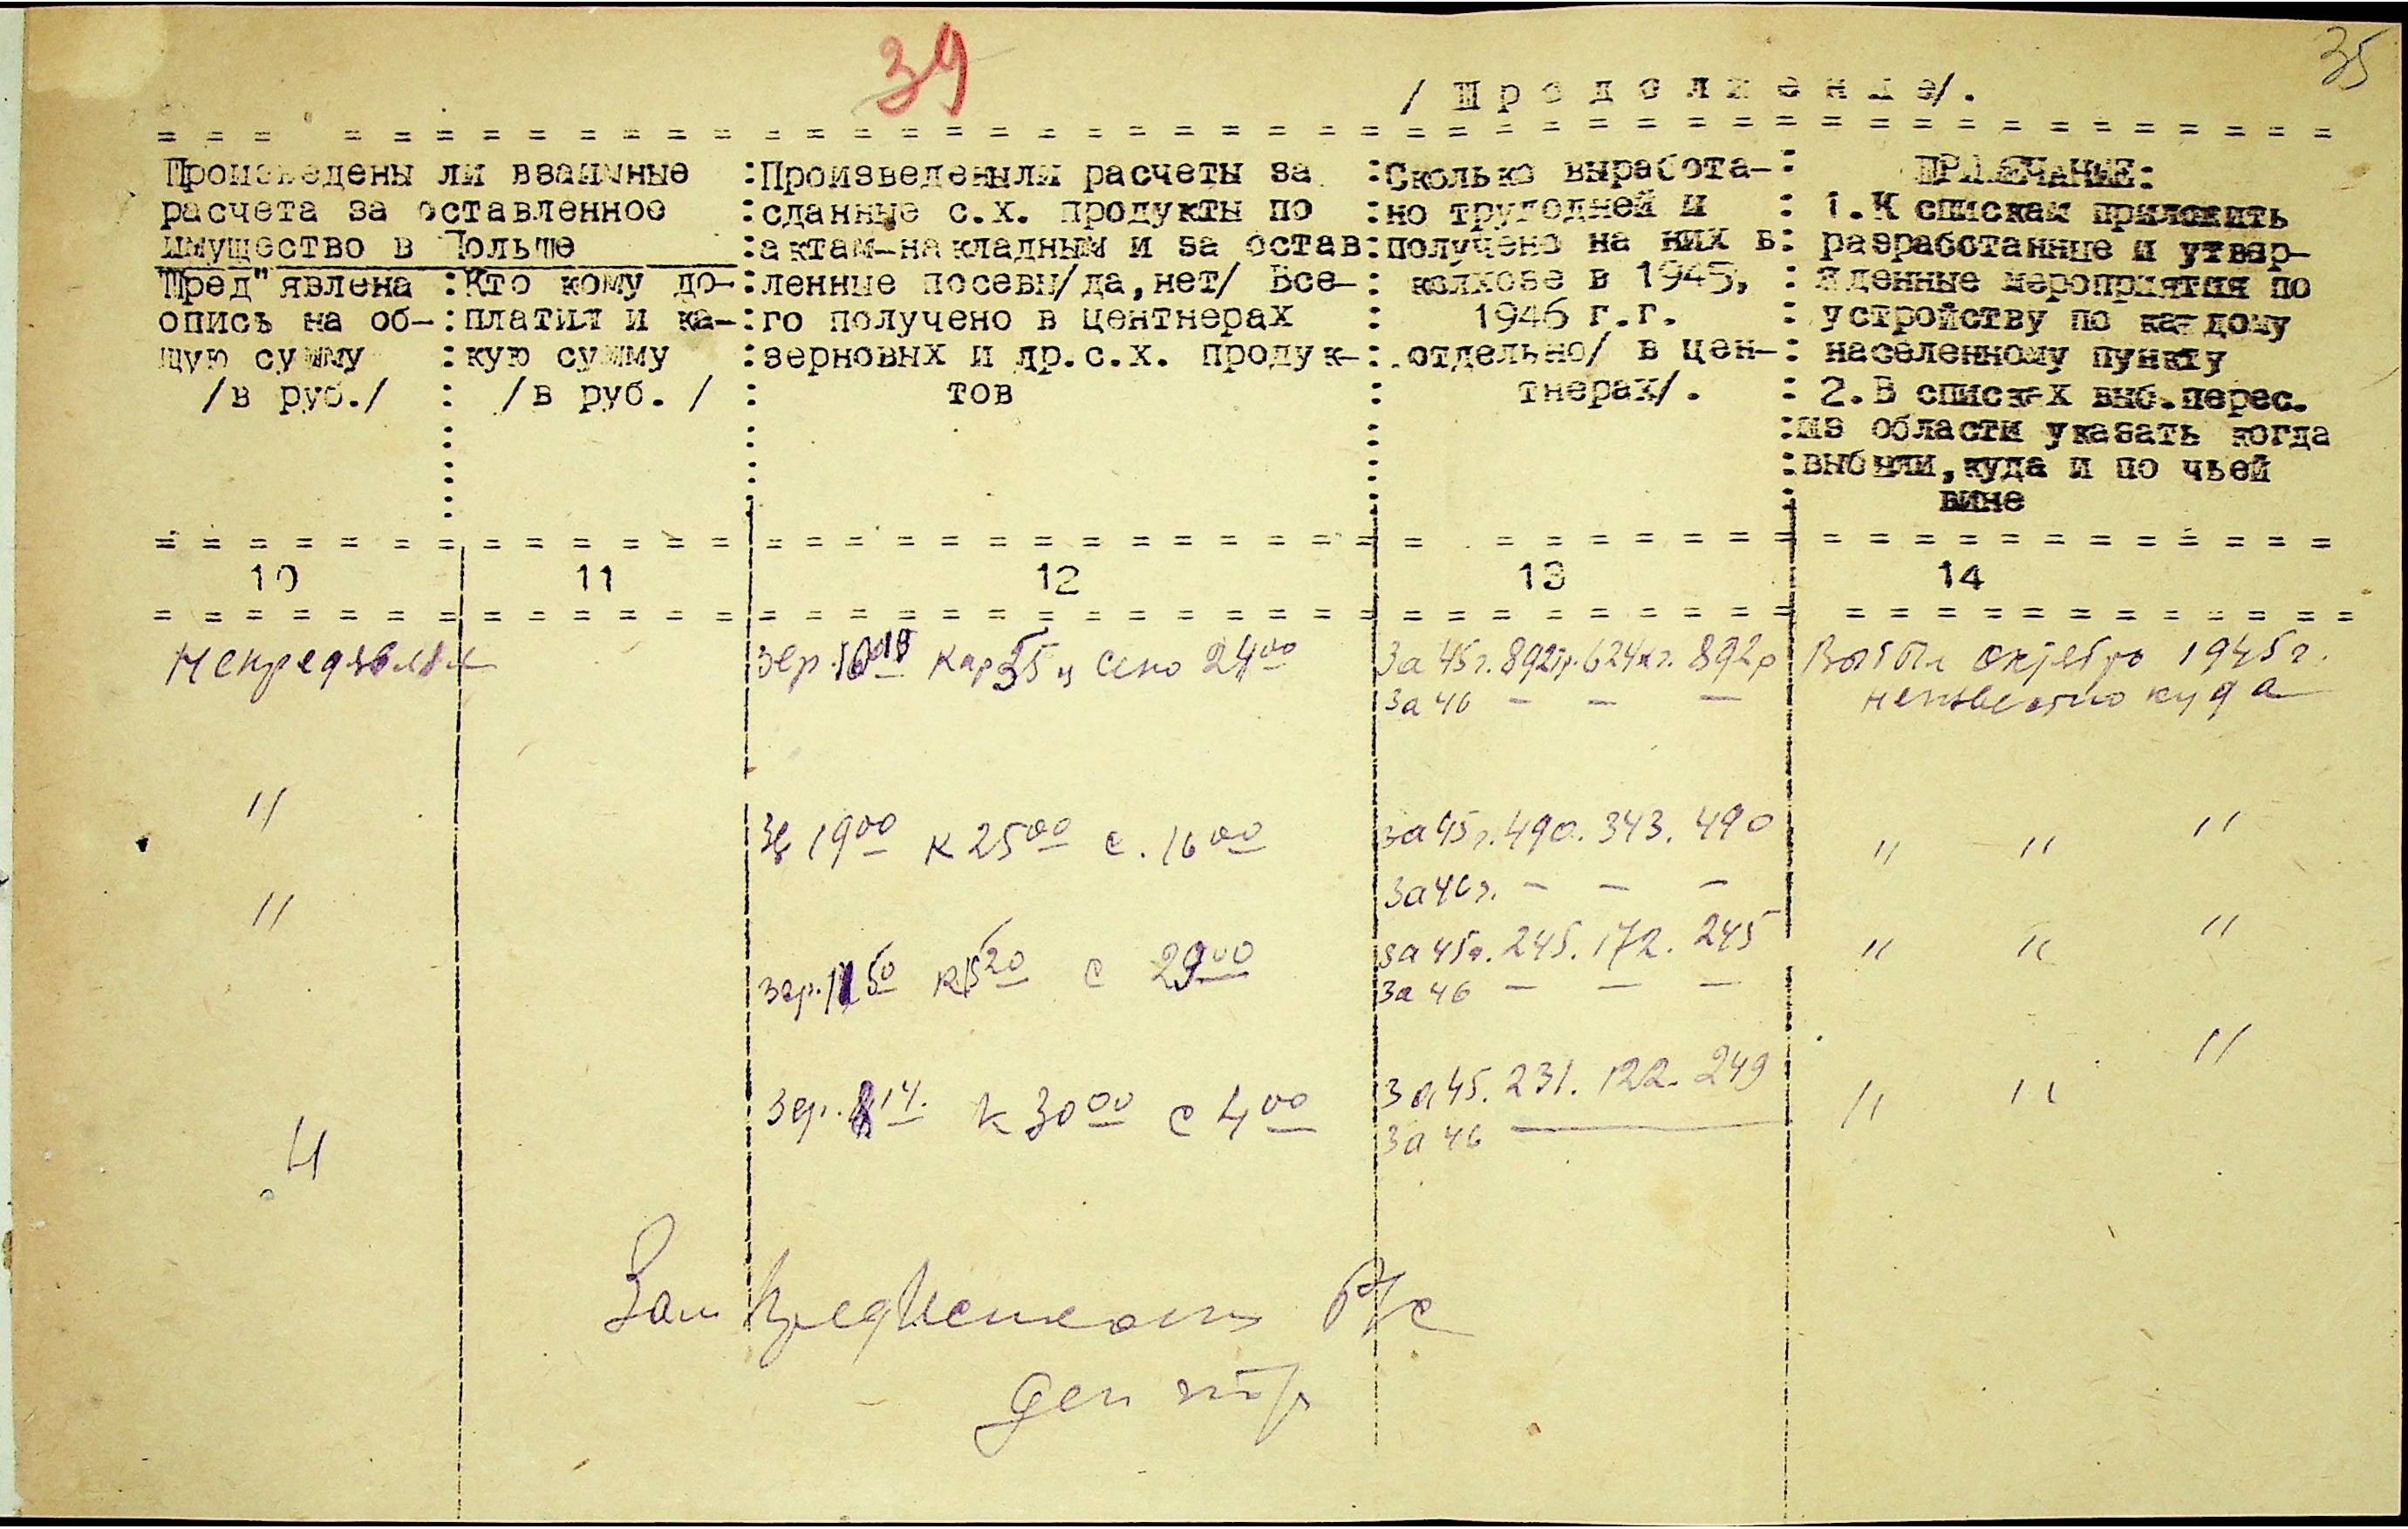 39
35
/ П р о д о л ж е н и е/.
Произведены ли взаимные
расчета за оставленное
имущество в Польше
Пред"явлена
опись на об-
щую сумму
/в руб./
Кто кому до-
платил и ка-
кую сумму
/в руб. /
Произведены ли расчеты за
сданные с.х. продукты по
актам-накладным и за остав
ленные посевы/да,нет/ Все-
го получено в центнерах
зерновых и др.с.х. продук-
тов
Сколько выработа-
но трудодней и
получено на них в
колхозе в 1945,
1946 г.г.
отдельно/ в цен-
тнерах/.
ПРИМЕЧАНИЕ:
1.К спискам приложить
разработанные и утвер-
жденные мероприятия по
устройству по каждому
населенному пункту
2.В списках выб.перес.
из области указать когда
выбыли,куда и по чьей
вине
10 11 12 13 14
Непредъявлял зер. кар 35 ц сено 24 00 За 45 г. 892тр. 624кг. 892р Выбыл октябрь 1945 г.
За 46 — — — неизвестно куда
" 19 00 к 25 00 с. 16 00 за 45 г. 490. 343. 490 " " "
за 46 г. — — —
" зер. к 15 20 с 29 00 за 45 г. 245. 172. 245 " " "
За 46 — — —
зер. к 30 00 с 4 00 За 45. 231. 122. 249 " " "
" За 46 —
Зам